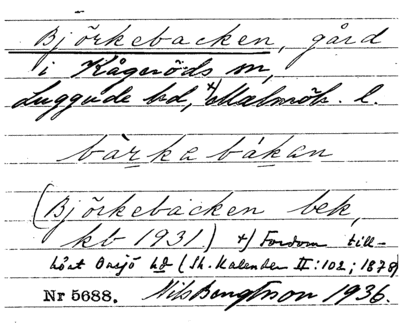 Björkebacken, gård
i Kågeröds sn,
Luggude hd, x) Malmöh. l.
bàrkebákan
(Björkebacken bek,
kb 1931) x) Fordom till-
hört Onsjö hd (Sk. Kalender II:102; 1878)
Nr 5688. Nils Bengtsson 1936.